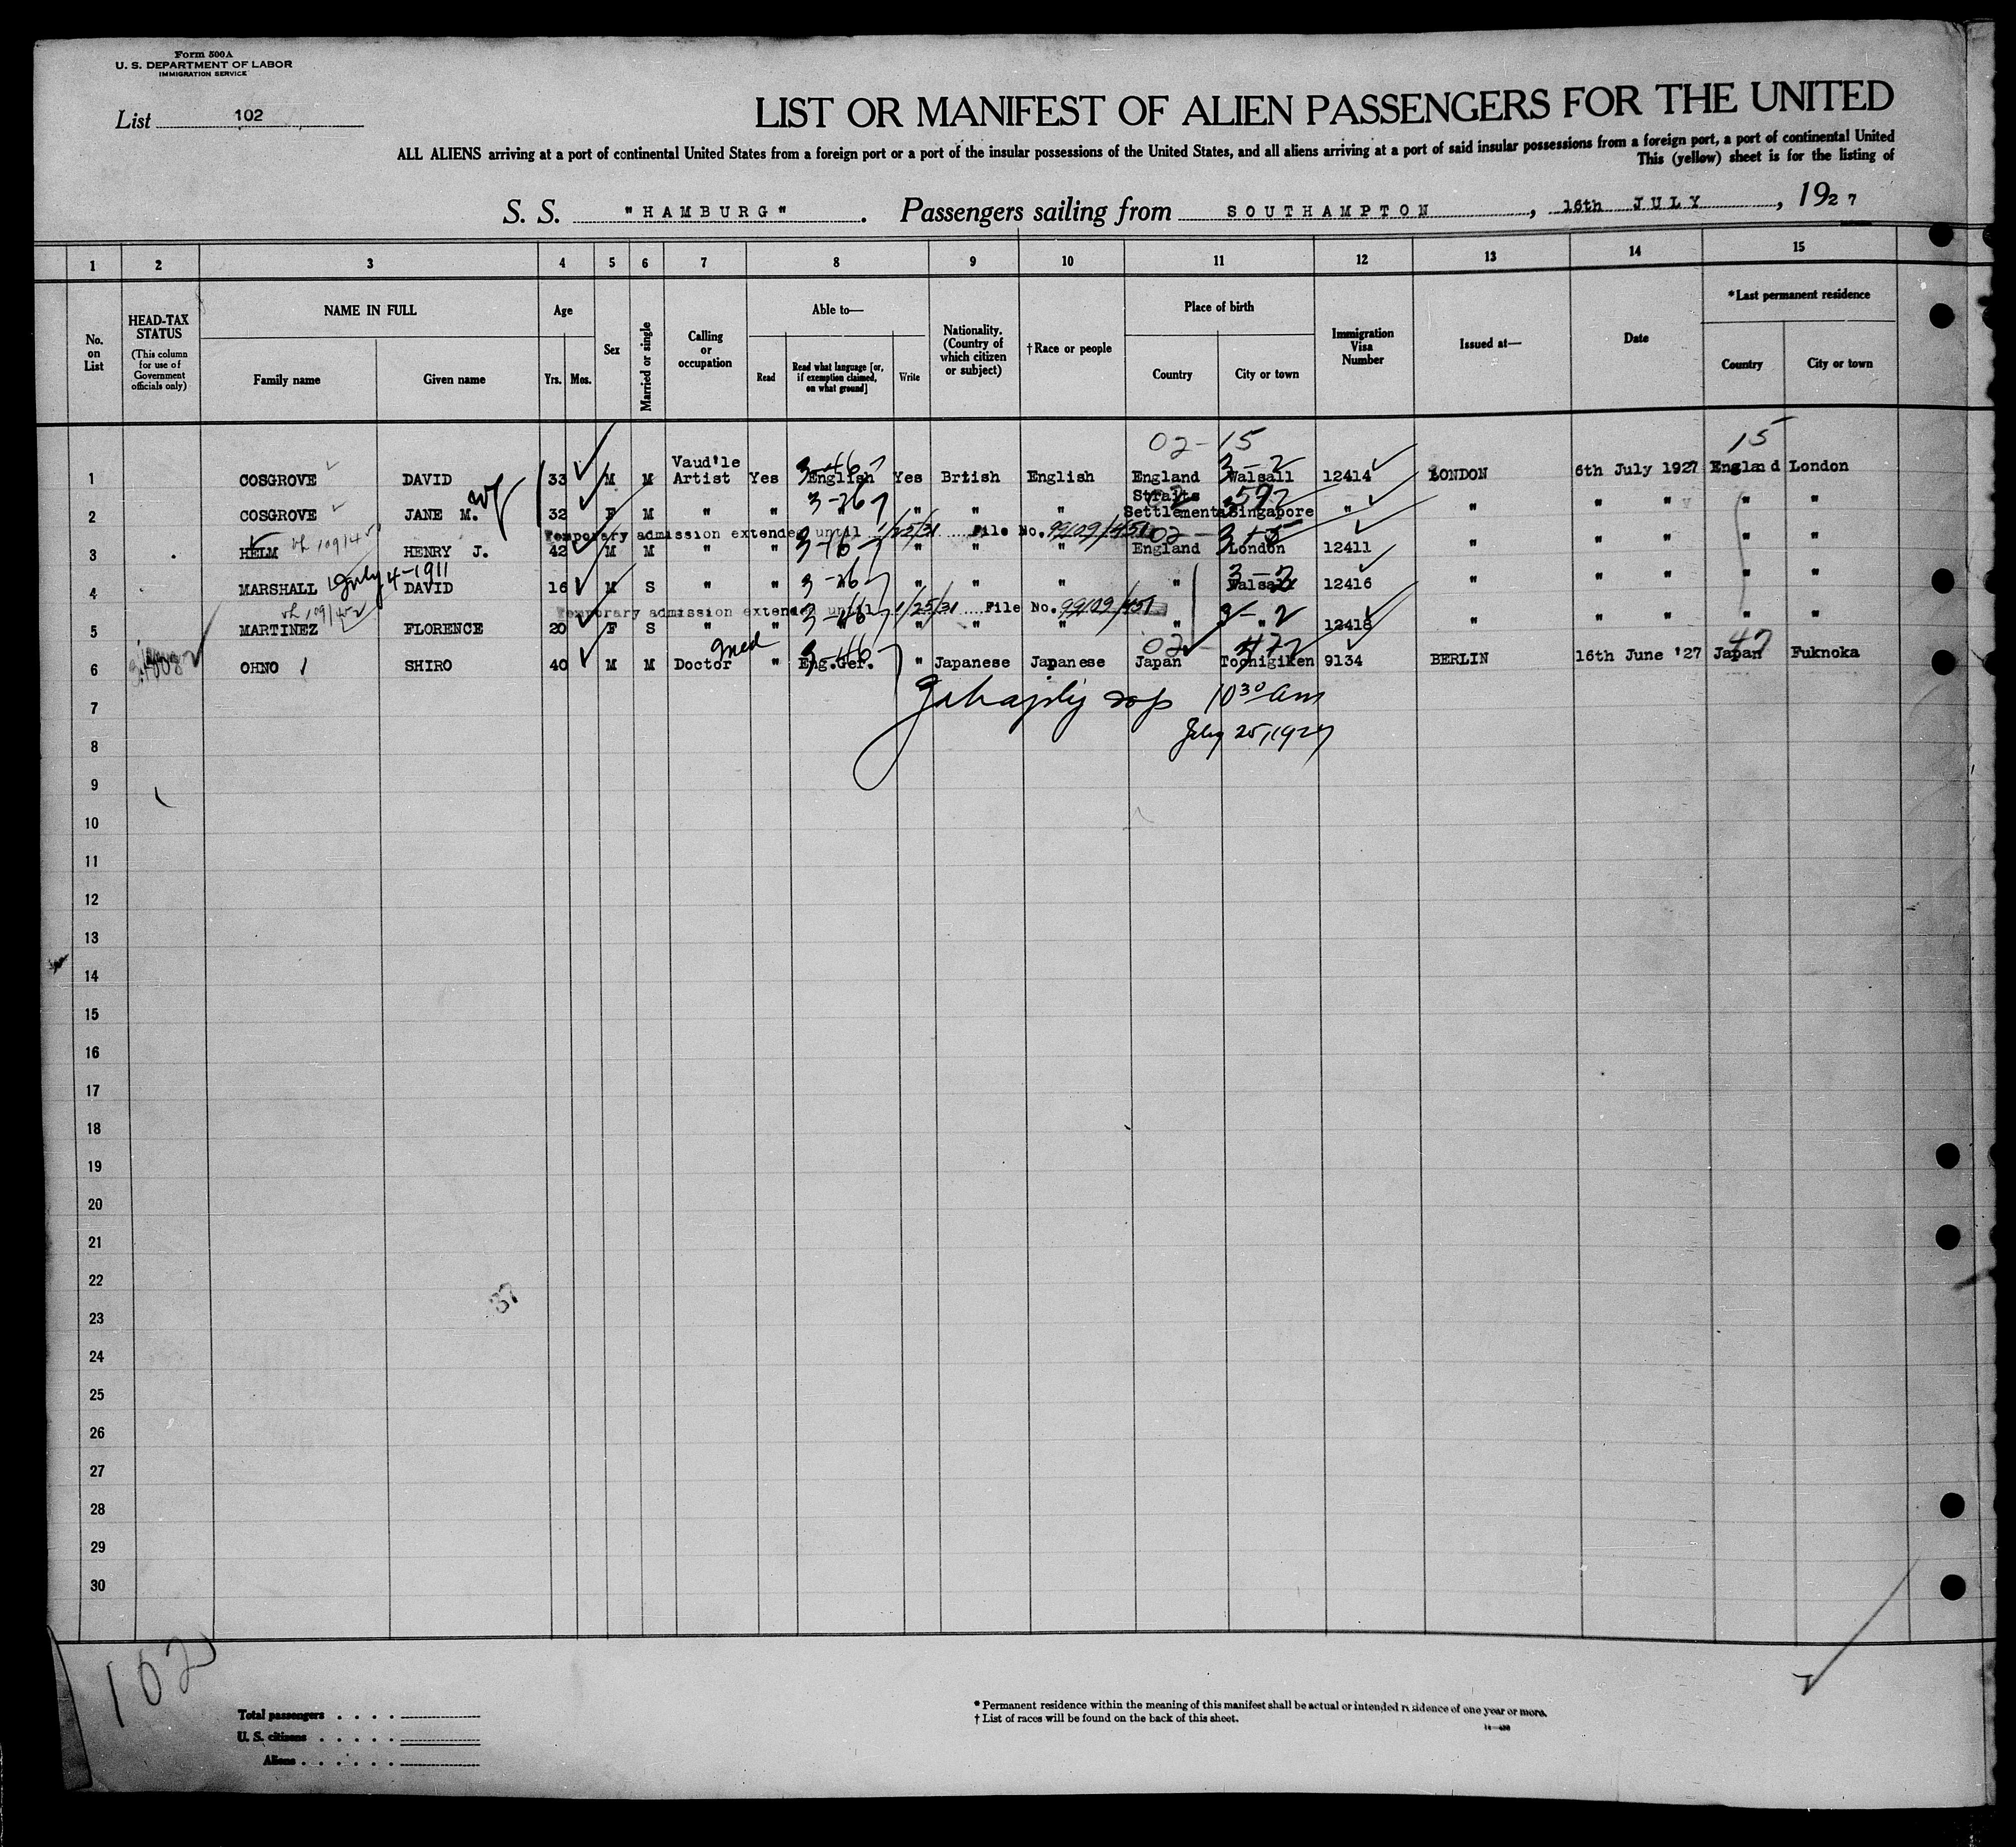 Form 500A
U. S. DEPARTMENT OF LABOR
IMMIGRATION SERVICE
List 102
LIST OR MANIFEST OF ALIEN PASSENGERS FOR THE UNITED
ALL ALIENS arriving at a port of continental United States from a foreign port or a port of the insular possessions of the United States, and all aliens arriving at a port of said insular possessions from a foreign port, a port of continental United
This (yellow) sheet is for the listing of
S. S. "HAMBURG". Passengers sailing from SOUTHAMPTON, 16th JULY, 1927
1 2 3 4 5 6 7 8 9 10 11 12 13 14 15
No. on List
HEAD-TAX STATUS
(This column for use of Government officials only)
NAME IN FULL
Family name Given name
Age
Yrs. Mos.
Sex
Married or single
Calling or occupation
Able to—
Read Read what language [or, if exemption claimed, on what ground] Write
Nationality. (Country of which citizen or subject)
†Race or people
Place of birth
Country City or town
Immigration Visa Number
Issued at—
Date
*Last permanent residence
Country City or town
02-15 15
1 COSGROVE DAVID 33 M M Vaud'le Artist Yes English 3-467 Yes Brtish English England Walsall 3-2 12414 LONDON 6th July 1927 England London
2 COSGROVE JANE M. 32 F M " " " 3-267 " " " Straits Settlements Singapore 592 " " " " " "
Temporary admission extended until 1/25/31 File No. 99109/451
3 HELM HENRY J. 42 M M " " " " " England London 02 12411 " " " " "
July 4-1911
4 MARSHALL DAVID 16 M S " " 3-267 " " " " Walsall 3-2 12416 " " " " "
Temporary admission extended until 1/25/31 File No. 99109/451
5 MARTINEZ FLORENCE 20 F S " " " 3-467 " " " " " 3-2 12418 " " " " "
6 OHNO SHIRO 40 M M Doctor med " Eng.Ger. 3-467 " Japanese Japanese Japan Tochigiken 02 477 9134 BERLIN 16th June '27 Japan 47 Fuknoka
7 10 30 am
8 July 25, 1927
9
10
11
12
13
14
15
16
17
18
19
20
21
22
37
23
24
25
26
27
28
29
30
102
Total passengers
U. S. citizens
Aliens
* Permanent residence within the meaning of this manifest shall be actual or intended residence of one year or more.
† List of races will be found on the back of this sheet.